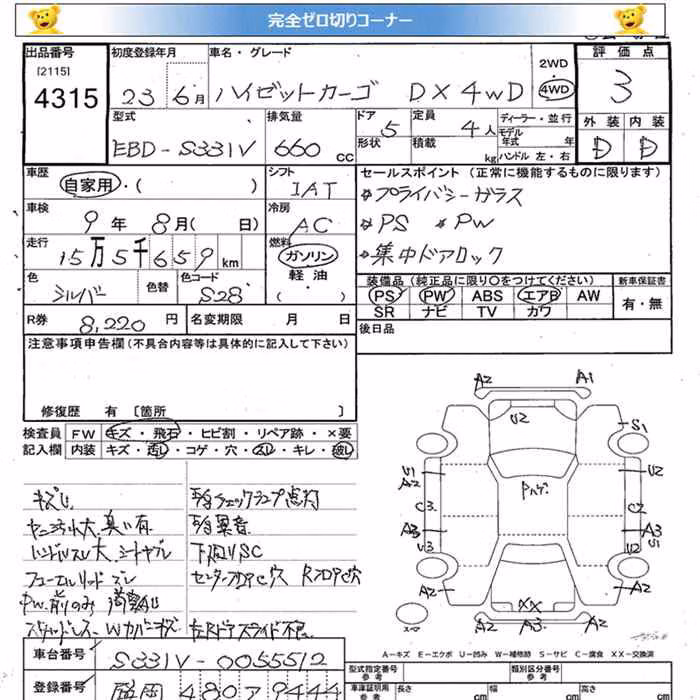 完全ゼロ切りコーナー
出品番号 初度登録年月 車名・グレード 2WD 評価点
[2115]
4315 23 6月 ハイゼットカーゴ DX 4WD 4WD 3
型式 排気量 ドア 定員 ディーラー・並行 外装 内装
EBD-S331V 660cc 5 4人 モデル年式 年 D D
形状 積載 kg ハンドル 左・右
車歴 シフト セールスポイント(正常に機能するものに限ります)
自家用・( ) IAT *プライバシーガラス
車検 冷房 *PS *PW
9年 8月( 日) AC *集中ドアロック
走行 燃料
15万5千659km ガソリン
軽油
( )
色 色替 色コード 装備品(純正品に限り〇をつけてください) 新車保証書
シルバー S28 PS PW ABS エアB AW 有・無
SR ナビ TV カワ
R券 8,220円 名変期限 月 日 後日品
注意事項申告欄(不具合内容等は具体的に記入して下さい)
修復歴 有 [箇所 ]
検査員 FW キズ・飛石・ヒビ割・リペア跡・×要
記入欄 内装 キズ・汚し・コゲ・穴・スレ・キレ・破レ
キズU
ヤニ汚れ大、臭い有
ハンドルスレ大、シートヤブレ
フューエルリッド ズレ
PW.前のみ
下回りSC
A2 A1
U2
S1
U1 A2 U2
Pハゲ
C3 C2
A3 A3 S1
U3 U2
A2 XX A2
A2 A3 A2
スペア
A-キズ E-エクボ U-凹み W-補修跡 S-サビ C-腐食 XX-交換済
車台番号 S331V-0055512
登録番号 盛岡 480 ア 9444
型式指定番号 参考 類別区分番号 参考
車庫証明用 参考 長さ cm 幅 cm 高さ cm